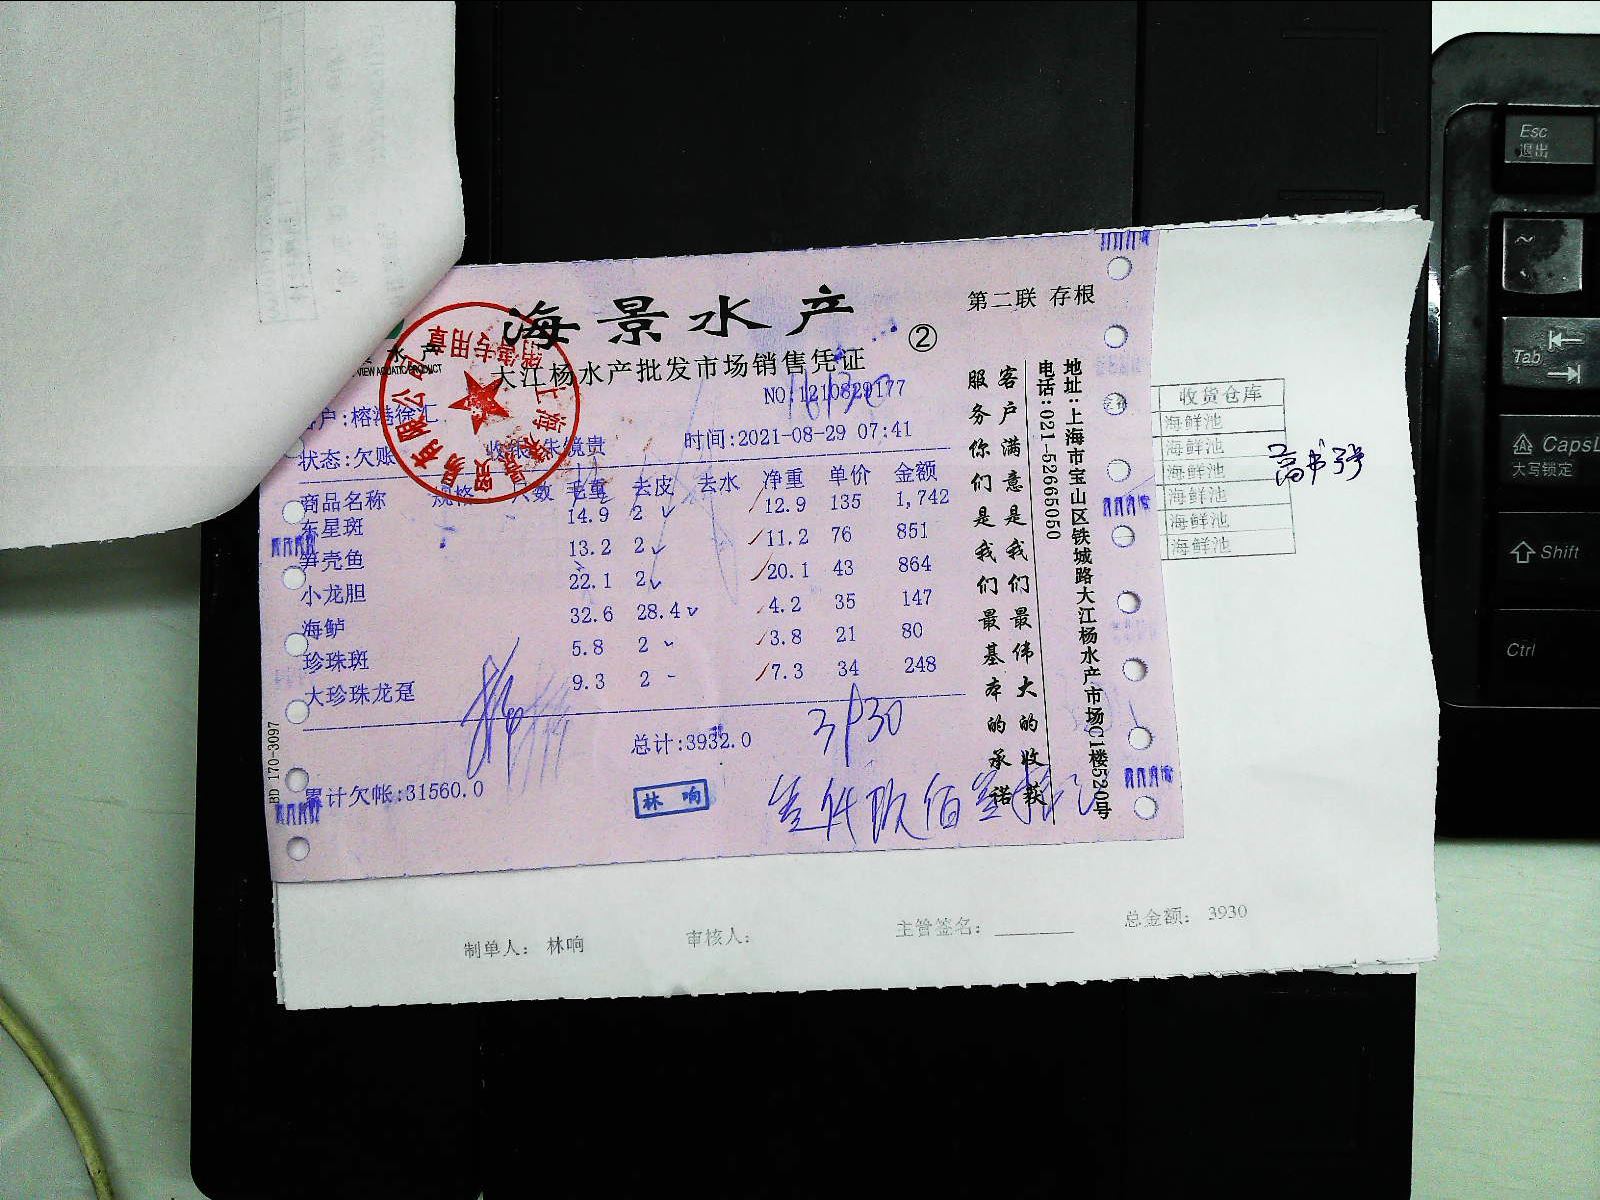 海景水产
第二联 存根
②
大江杨水产批发市场销售凭证
水产
VIEW AQUATIC PRODUCT
NO:1210829177
户:榕港徐汇
时间:2021-08-29 07:41
状态:欠账
朱境贵
商品名称 规格 只数 毛重 去皮 去水 净重 单价 金额
东星斑 14.9 2 12.9 135 1,742
笋壳鱼 13.2 2 11.2 76 851
小龙胆 22.1 2 20.1 43 864
海鲈 32.6 28.4 4.2 35 147
珍珠斑 5.8 2 3.8 21 80
大珍珠龙趸 9.3 2 7.3 34 248
总计:3932.0
3930
累计欠帐:31560.0
林响
BD 170-3097
客户满意是我们最伟大的收获
服务你们是我们最基本的承诺
地址:上海市宝山区铁城路大江杨水产市场C1楼520号
电话:021-52665050
专用章
收货仓库
海鲜池
海鲜池
海鲜池
海鲜池
海鲜池
海鲜池
制单人: 林响
审核人:
主管签名:
总金额: 3930
Esc
退出
~
Tab
CapsL
大写锁定
Shift
Ctrl